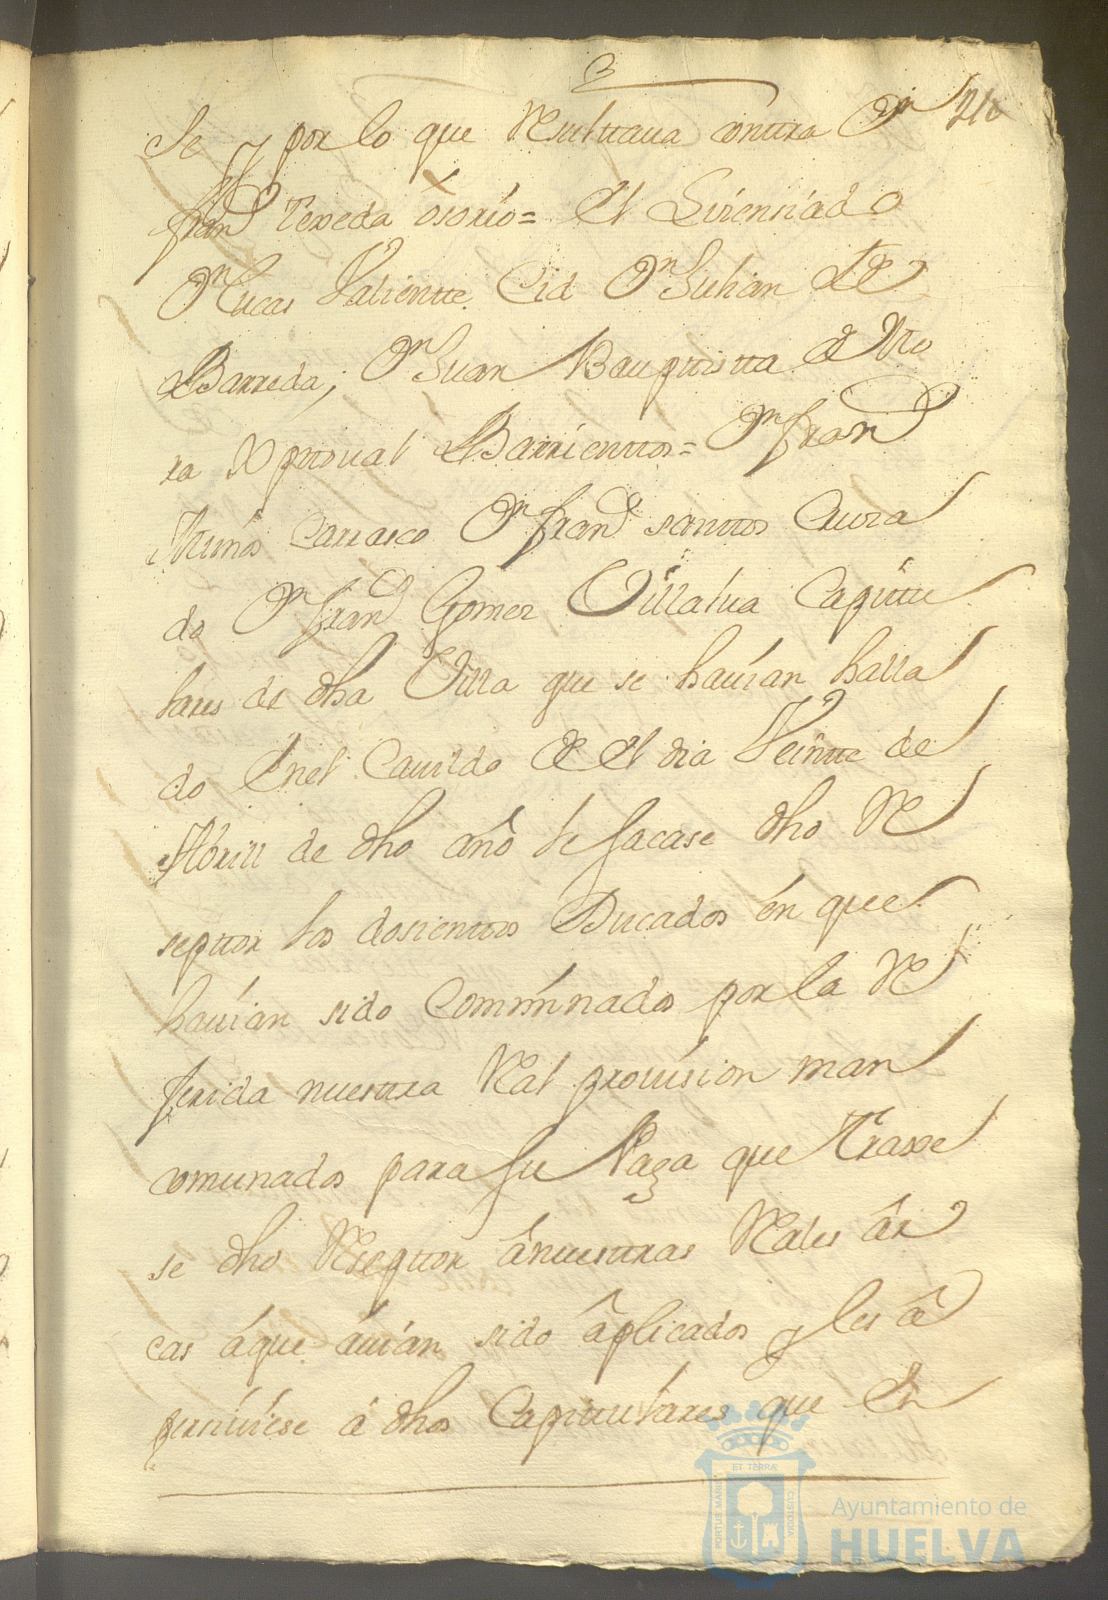 3
210
se y por lo que Resultaua contra Dn
Franco Texeda osorio= El Lisensiado
Dn Lucas Valiente Cid Dn Julian de
Barreda; Dn Juan Bauptista de Mo
ra Xptoual Barrientos= Dn Franco
Muños Carrasco Dn Franco santtos Cura
do Dn Franco Gomez Villalua Capittu
lares de dha Villa que se hauian halla
do Enel Cauildo de El dia Veintte de
Abrill de dho año le sacase dho Re
septtor los dosienttos Ducados en que
hauian sido Comminados por la Re
ferida nuestra Real prouision man
comunados para su Paga que Traxe
se dho Reseptor a nuestras Reales ar
cas a que auian sido aplicados y les a
perciuiese a dhos Capitulares que En
PORTUS MARIS ET TERRAE CUSTODIA
Ayuntamiento de
HUELVA